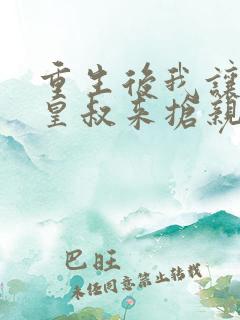 重生後我讓
皇叔來搶親
巴旺
未经同意禁止转载